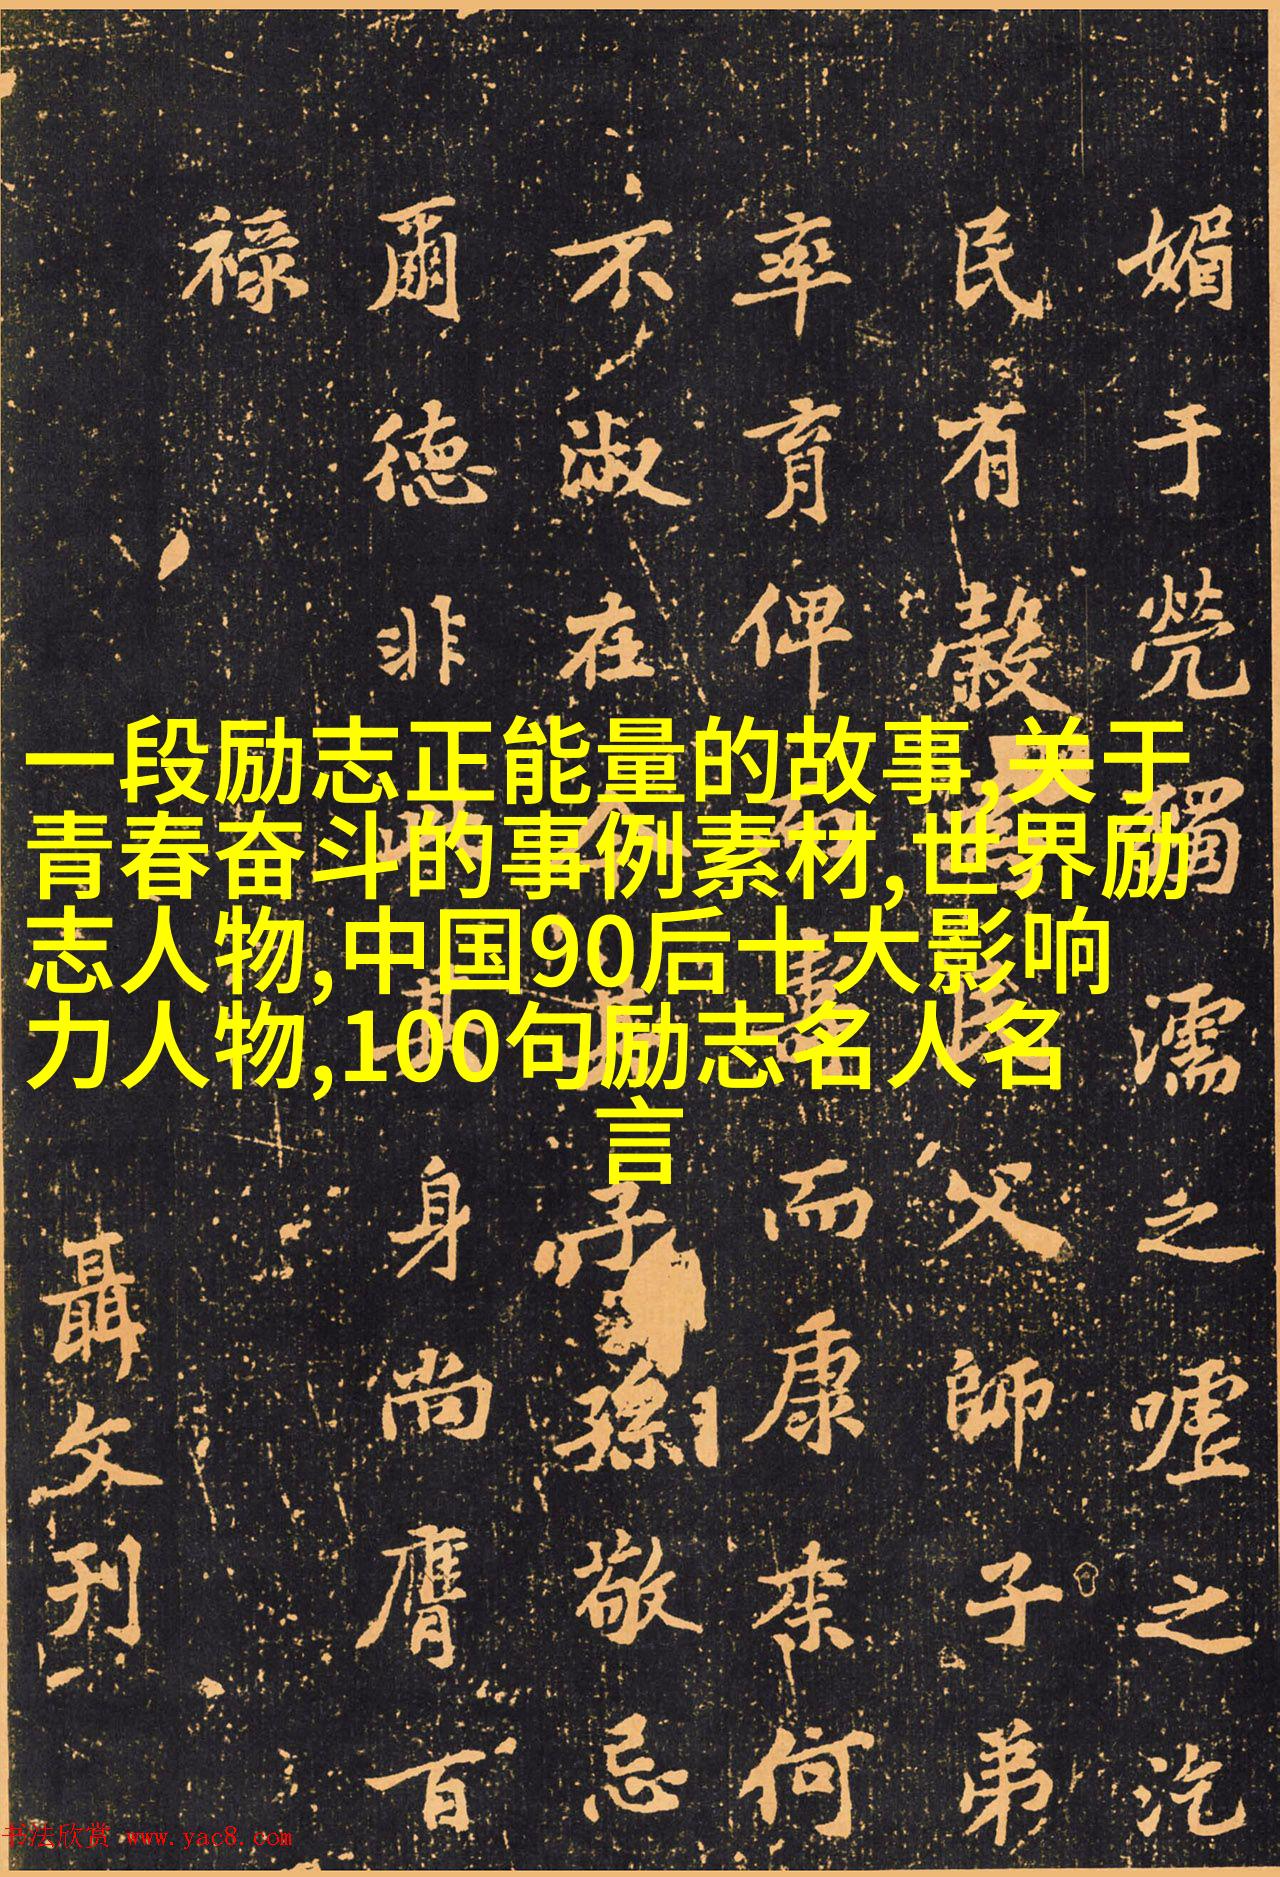 一段励志正能量的故事,关于
青春奋斗的事例素材,世界励
志人物,中国90后十大影响
力人物,100句励志名人名
言
媚于煢獨濡之嘘之汔
民有穀民父師子弟
率育俾壽而康来何
不淑在子孫敬忌
爾德非此其身尚膺百
禄
聶文刊
书法欣赏 www.yac8.com